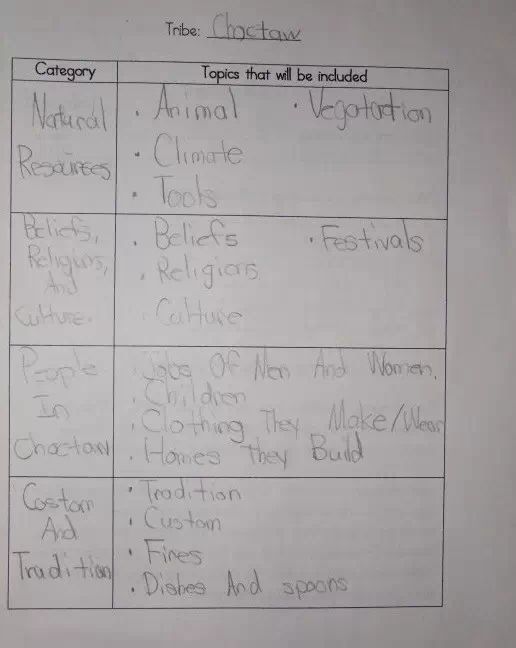 Tribe: Choctaw
Category
Topics that will be included
Natural
Resources
• Animal • Vegatation
• Climate
• Tools
Beliefs,
Religions,
And
Culture.
• Beliefs • Festivals
• Religions
• Culture
People
In
Choctaw
• Jobs Of Men And Women.
• Children
• Clothing They Make/Wear
• Homes They Build
Costom
And
Tradition
• Tradition
• Custom
• Fires
• Dishes And spoons